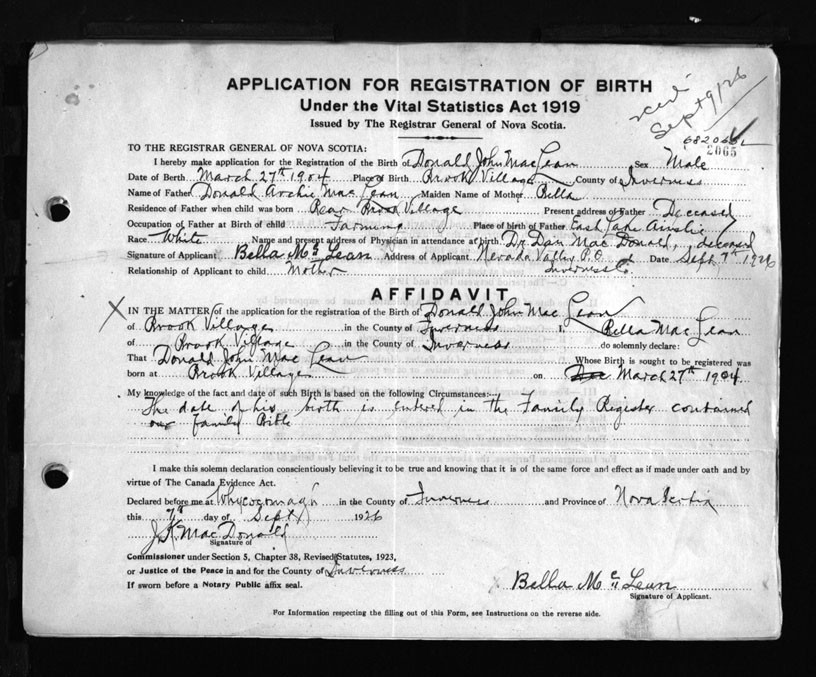 APPLICATION FOR REGISTRATION OF BIRTH
Under the Vital Statistics Act 1919
Issued by The Registrar General of Nova Scotia.
recd Sept 9/26
2065
TO THE REGISTRAR GENERAL OF NOVA SCOTIA:
I hereby make application for the Registration of the Birth of Donald John MacLean Sex Male
Date of Birth March 27th 1904 Place of Birth Brook Village County of Inverness
Name of Father Donald Archie MacLean Maiden Name of Mother Bella
Residence of Father when child was born Rear Brook Village Present address of Father Deceased
Occupation of Father at Birth of child Farming Place of birth of Father East Lake Ainslie
Race White Name and present address of Physician in attendance at birth Dr Dan MacDonald, deceased
Signature of Applicant Bella McLean Address of Applicant P.O. Date Sept 7th 1926
Relationship of Applicant to child Mother Inverness Co.
AFFIDAVIT
X IN THE MATTER of the application for the registration of the Birth of Donald John MacLean
of Brook Village in the County of Inverness I, Bella MacLean
of Brook Village in the County of Inverness do solemnly declare:
That Donald John MacLean Whose Birth is sought to be registered was
born at Brook Village on March 27th 1904
My knowledge of the fact and date of such Birth is based on the following Circumstances:—
The date of his birth is entered in the Family Register contained
our Family Bible
I make this solemn declaration conscientiously believing it to be true and knowing that it is of the same force and effect as if made under oath and by
virtue of The Canada Evidence Act.
Declared before me at Whycocomagh in the County of Inverness and Province of Nova Scotia
this 7th day of Sept 1926
J K MacDonald
Signature of
Commissioner under Section 5, Chapter 38, Revised Statutes, 1923,
or Justice of the Peace in and for the County of Inverness
If sworn before a Notary Public affix seal.
X Bella McLean
Signature of Applicant.
For Information respecting the filling out of this Form, see Instructions on the reverse side.